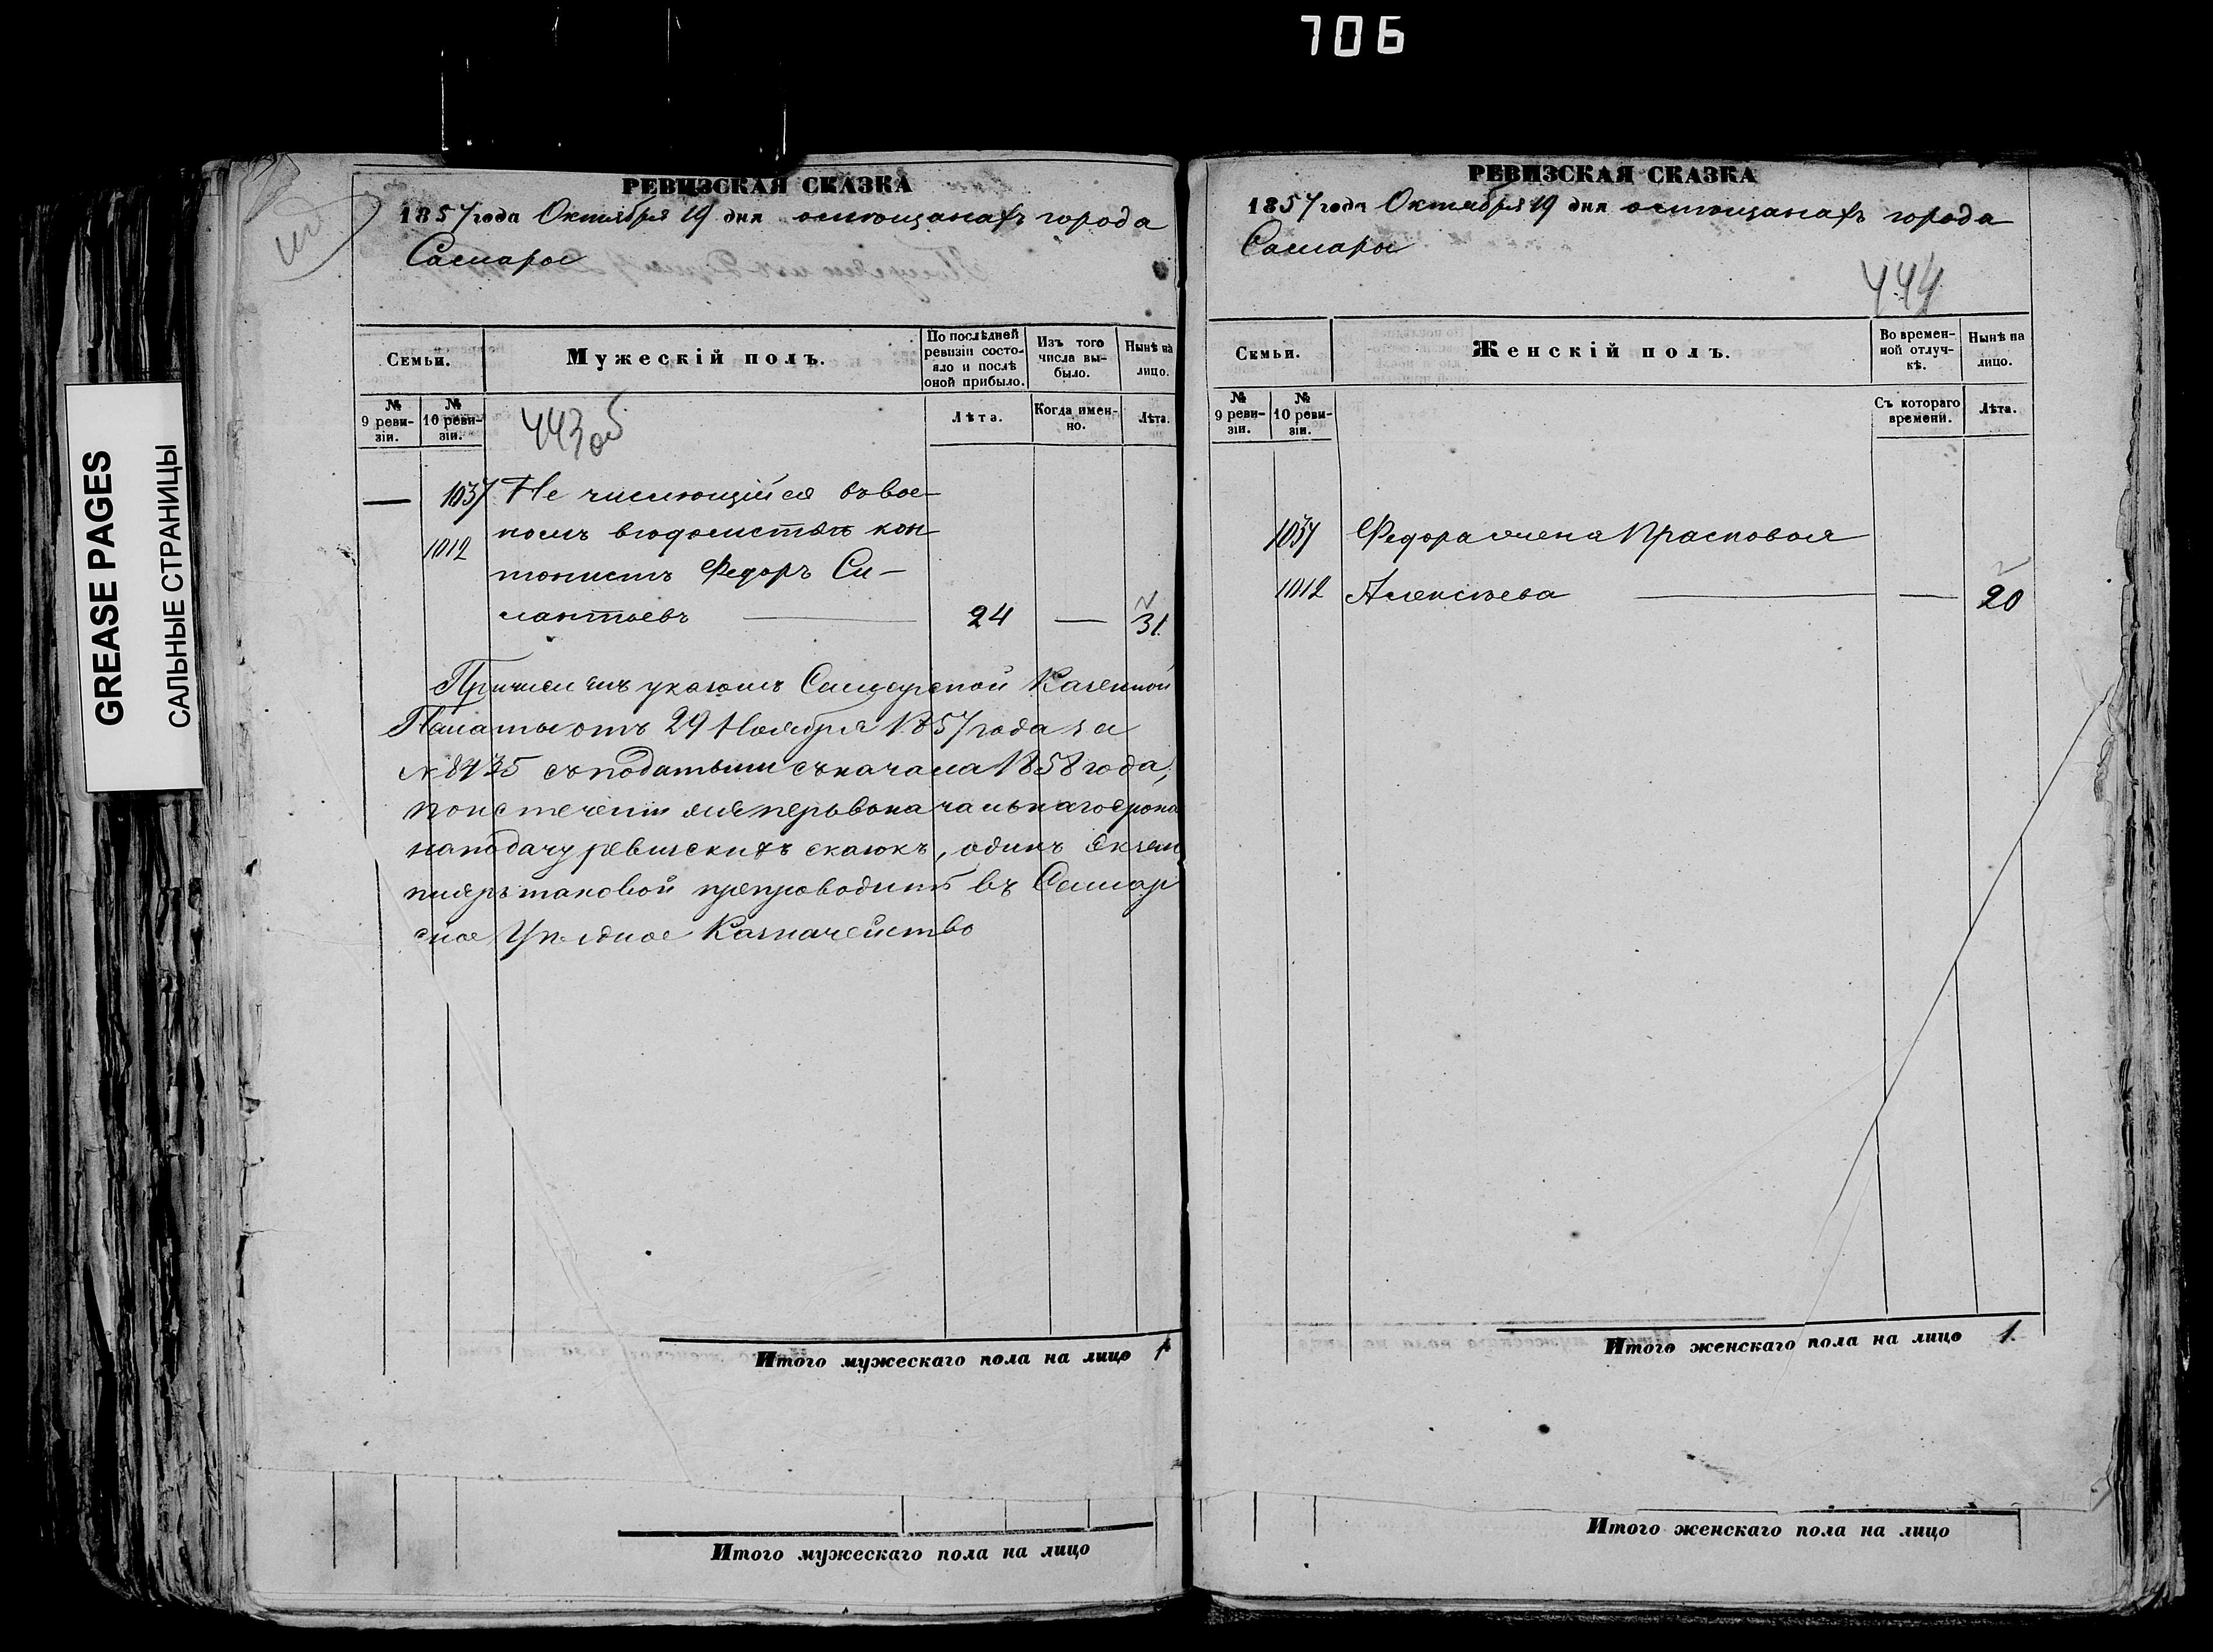 706
GREASE PAGES
САЛЬНЫЕ СТРАНИЦЫ
РЕВИЗСКАЯ СКАЗКА
1857 года Октября 19 дня о мѣщанахъ города
Самары
Семьи.
Мужескій полъ.
По послѣдней ревизіи состояло и послѣ оной прибыло.
Изъ того числа выбыло.
Нынѣ на лицо.
№ 9 ревизіи.
№ 10 ревизіи.
443 об
Лѣта.
Когда именно.
Лѣта.
— 1037 Не числющійся въ вое-
1012 номъ вѣдомствѣ кан
тонистъ Федоръ Си-
лантьевъ — 24 — 31.
Причисленъ указомъ Самарской Казенной
Палаты отъ 29 Ноября 1857 года за
№ 8735 съ податьми съ начала 1858 года,
по истеченіи перьвоначальнаго срока
на подачу ревизскихъ сказокъ, одинъ Екзем
пляръ таковой препроводить въ Самар
ское Уѣздное Казначейство
Итого мужескаго пола на лицо 1.
Итого мужескаго пола на лицо
РЕВИЗСКАЯ СКАЗКА
1857 года Октября 19 дня о мѣщанахъ города
Самары
444
Семьи.
Женскій полъ.
Во временной отлучкѣ.
Нынѣ на лицо.
№ 9 ревизіи.
№ 10 ревизіи.
Съ котораго времени.
Лѣта.
1037 Федора жена Прасковья
1012 Алексѣева — — 20
Итого женскаго пола на лицо 1.
Итого женскаго пола на лицо